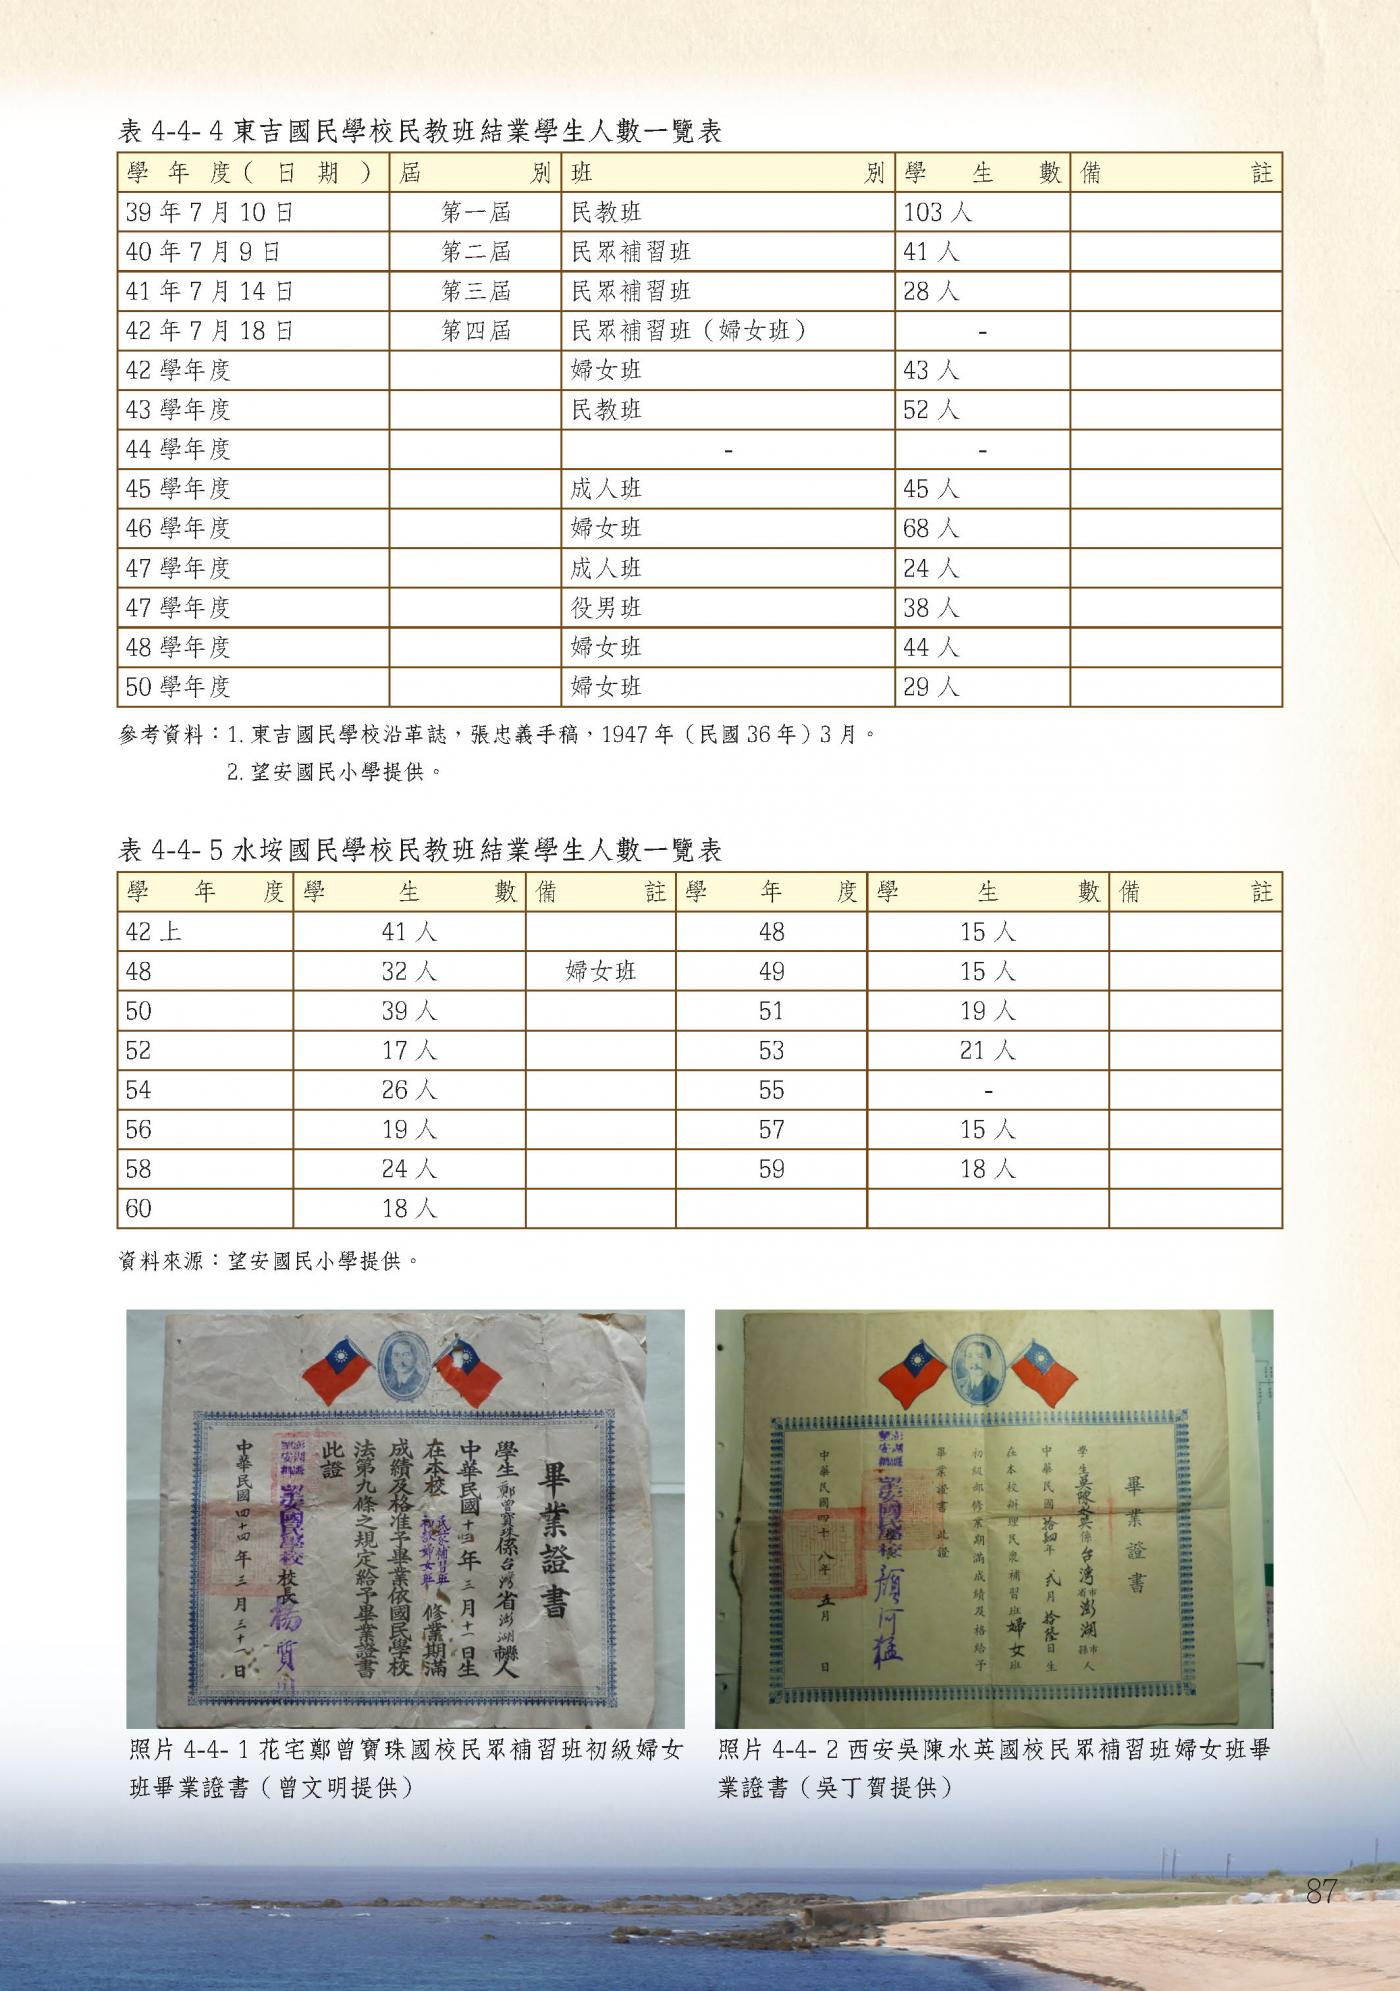 表 4-4- 4 東吉國民學校民教班結業學生人數一覽表
學年度(日期) 屆別 班別 學生數 備註
39 年 7 月 10 日 第一屆 民教班 103 人
40 年 7 月 9 日 第二屆 民眾補習班 41 人
41 年 7 月 14 日 第三屆 民眾補習班 28 人
42 年 7 月 18 日 第四屆 民眾補習班（婦女班） -
42 學年度 婦女班 43 人
43 學年度 民教班 52 人
44 學年度 - -
45 學年度 成人班 45 人
46 學年度 婦女班 68 人
47 學年度 成人班 24 人
47 學年度 役男班 38 人
48 學年度 婦女班 44 人
50 學年度 婦女班 29 人
參考資料：1. 東吉國民學校沿革誌，張忠義手稿，1947 年（民國 36 年）3 月。
2. 望安國民小學提供。
表 4-4- 5 水垵國民學校民教班結業學生人數一覽表
學年度 學生數 備註 學年度 學生數 備註
42 上 41 人 48 15 人
48 32 人 婦女班 49 15 人
50 39 人 51 19 人
52 17 人 53 21 人
54 26 人 55 -
56 19 人 57 15 人
58 24 人 59 18 人
60 18 人
資料來源：望安國民小學提供。
畢業證書
學生鄭曾寶珠係台灣省澎湖縣市人
中華民國十四年三月十一日生
在本校民眾補習班初級婦女班修業期滿
成績及格准予畢業依國民學校
法第九條之規定給予畢業證書
此證
澎湖縣望安鄉望安國民學校校長楊質
中華民國四十四年三月三十八日
畢業證書
學生吳陳水英係台灣省市澎湖縣市人
中華民國拾四年弍月拾陸日生
在本校辦理民眾補習班婦女班
初級部修業期滿成績及格給予
畢業證書此證
澎湖縣望安鄉望安國民學校校長顏阿猛
中華民國四十八年五月 日
照片 4-4- 1 花宅鄭曾寶珠國校民眾補習班初級婦女
班畢業證書（曾文明提供）
照片 4-4- 2 西安吳陳水英國校民眾補習班婦女班畢
業證書（吳丁賀提供）
87